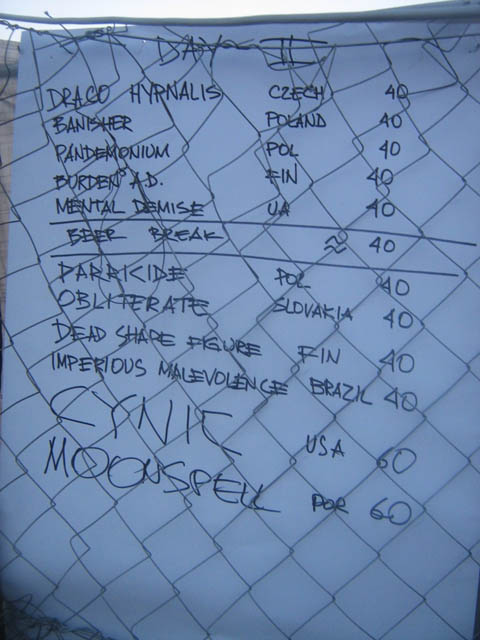 DAY II
DRACO HYPNALIS CZECH 40
BANISHER POLAND 40
PANDEMONIUM POL 40
BURDEN A.D. FIN 40
MENTAL DEMISE UA 40
BEER BREAK ≈ 40
PARRICIDE POL 40
OBLITERATE SLOVAKIA 40
DEAD SHAPE FIGURE FIN 40
IMPERIOUS MALEVOLENCE BRAZIL 40
CYNIC USA 60
MOONSPELL POR 60